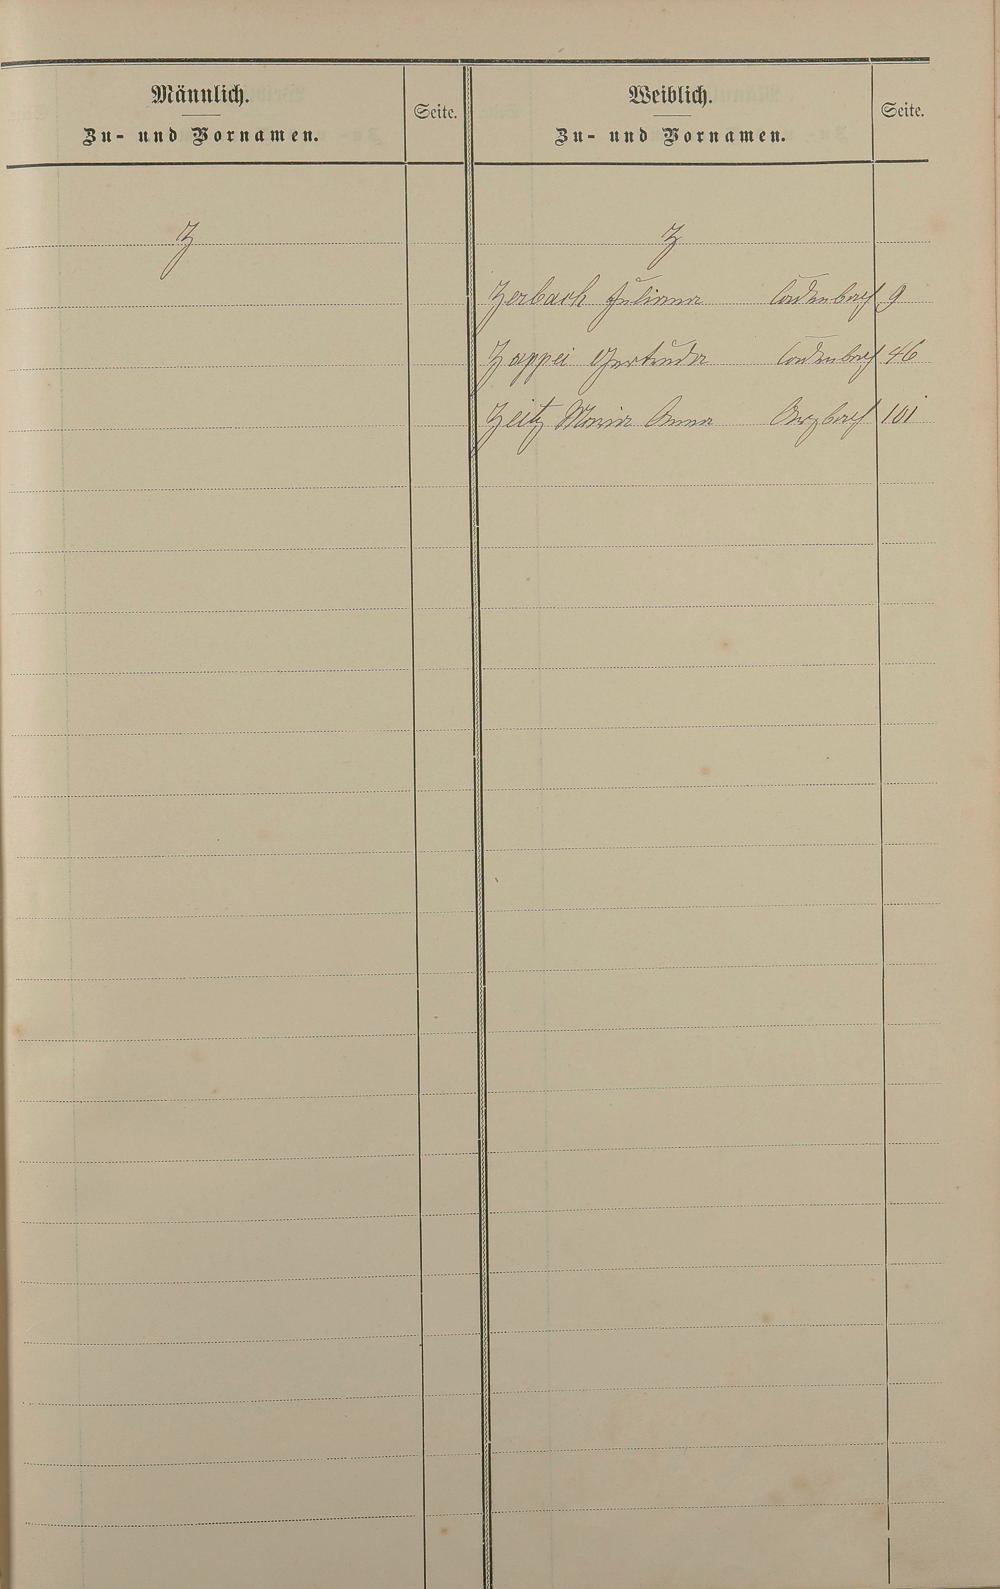 Männlich.
Zu- und Vornamen.
Seite.
Weiblich.
Zu- und Vornamen.
Seite.
Z
Z
Zerbach Juliana Cadenbach 9
Zappei Gertruda Cadenbach 46
Zeitz Maria Anna Arzbach 101